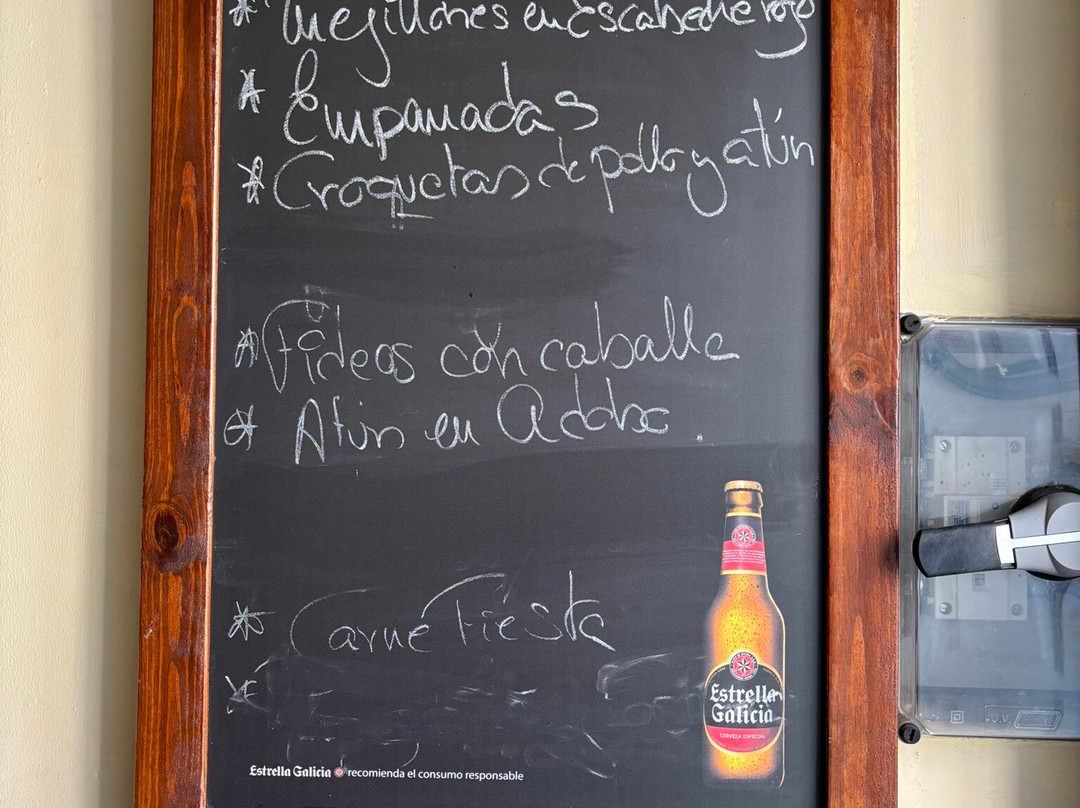 * Mejillones en Escabeche rojo
* Empanadas
* Croquetas de pollo y atún
* Fideos con caballa
* Atún en Adobo.
* Carne Fiesta
*
Estrella
Galicia
CERVEZA ESPECIAL
Estrella Galicia recomienda el consumo responsable
U.V.